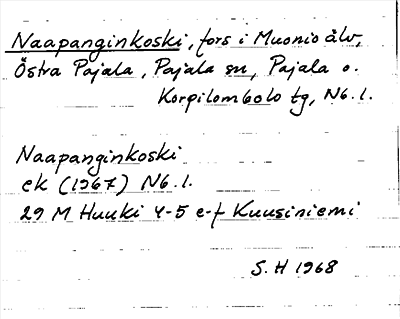 Naapanginkoski, fors i Muonio älv,
Östra Pajala, Pajala sn, Pajala o.
Korpilombolo tg, Nb. l.
Naapanginkoski
ek (1967) Nb. l.
29 M Huuki 4-5 e-f Kuusiniemi
S. H 1968